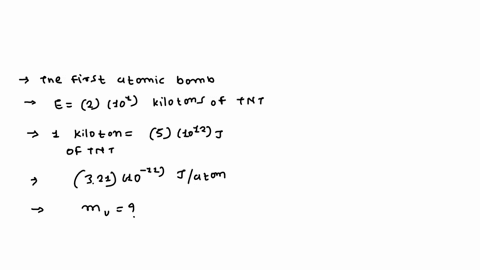 → The first atomic bomb
→ E = (2) (10⁴) kilotons of TNT
→ 1 kiloton = (5) (10¹²) J
of TNT
→ (3.21) (10⁻¹¹) J/atom
→ m_u = ?